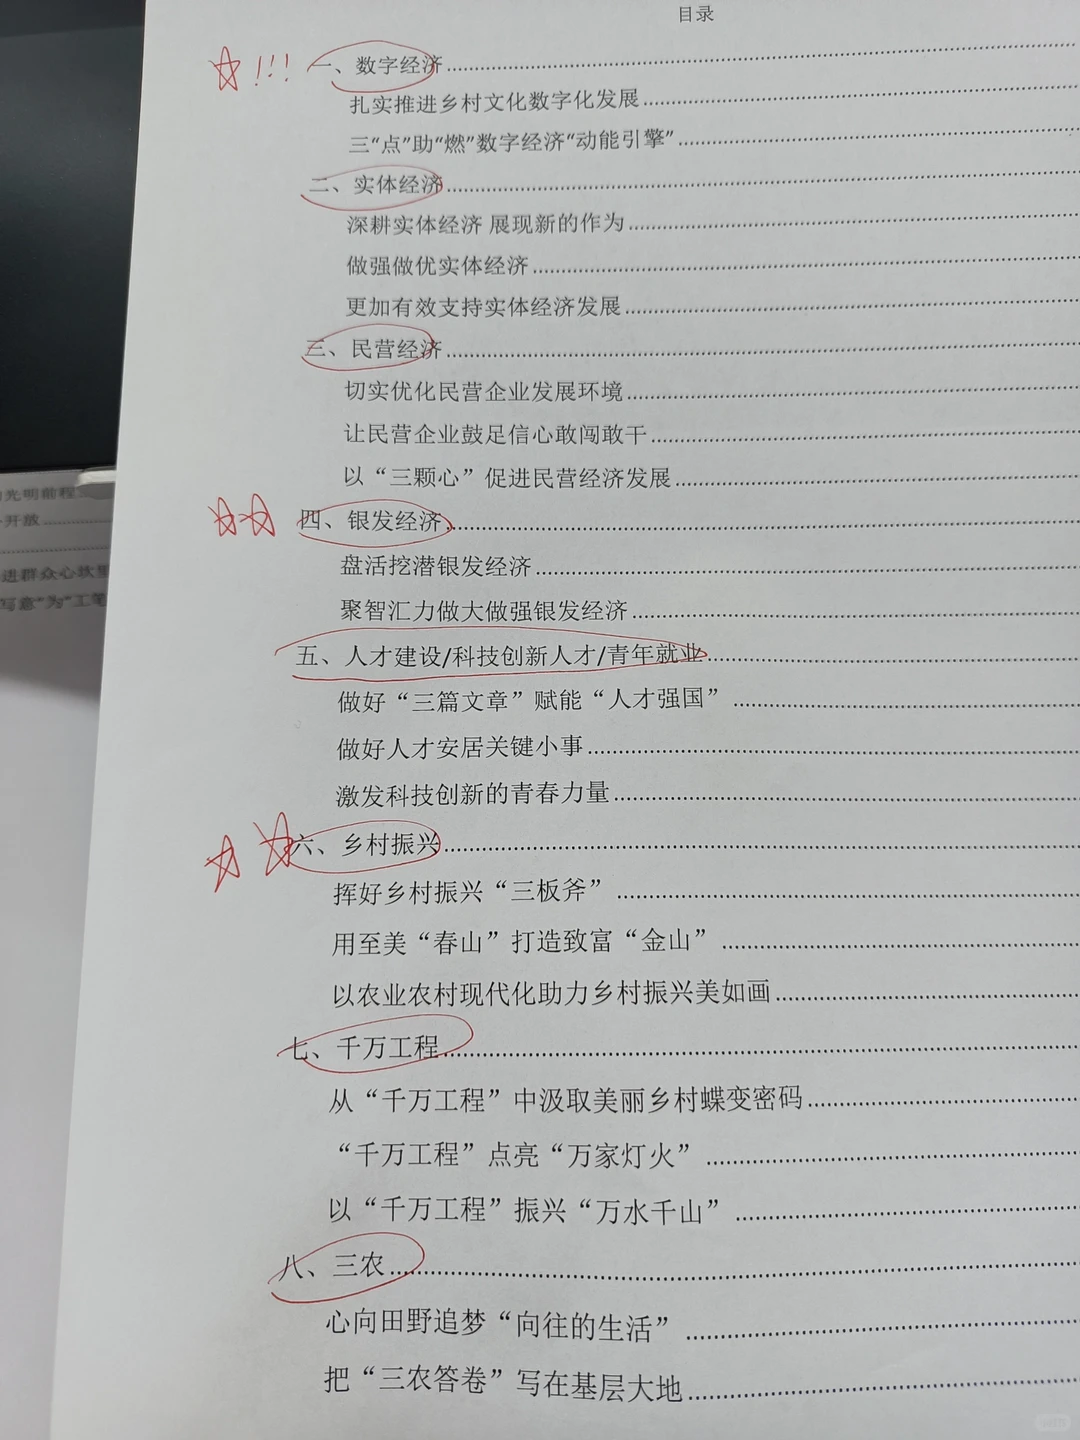 目录
一、数字经济
扎实推进乡村文化数字化发展
三“点”助“燃”数字经济“动能引擎”
二、实体经济
深耕实体经济 展现新的作为
做强做优实体经济
更加有效支持实体经济发展
三、民营经济
切实优化民营企业发展环境
让民营企业鼓足信心敢闯敢干
以“三颗心”促进民营经济发展
四、银发经济
盘活挖潜银发经济
聚智汇力做大做强银发经济
五、人才建设/科技创新人才/青年就业
做好“三篇文章”赋能“人才强国”
做好人才安居关键小事
激发科技创新的青春力量
六、乡村振兴
挥好乡村振兴“三板斧”
用至美“春山”打造致富“金山”
以农业农村现代化助力乡村振兴美如画
七、千万工程
从“千万工程”中汲取美丽乡村蝶变密码
“千万工程”点亮“万家灯火”
以“千万工程”振兴“万水千山”
八、三农
心向田野追梦“向往的生活”
把“三农答卷”写在基层大地
光明前程
开放
进群众心坎里
写意“为”工笔